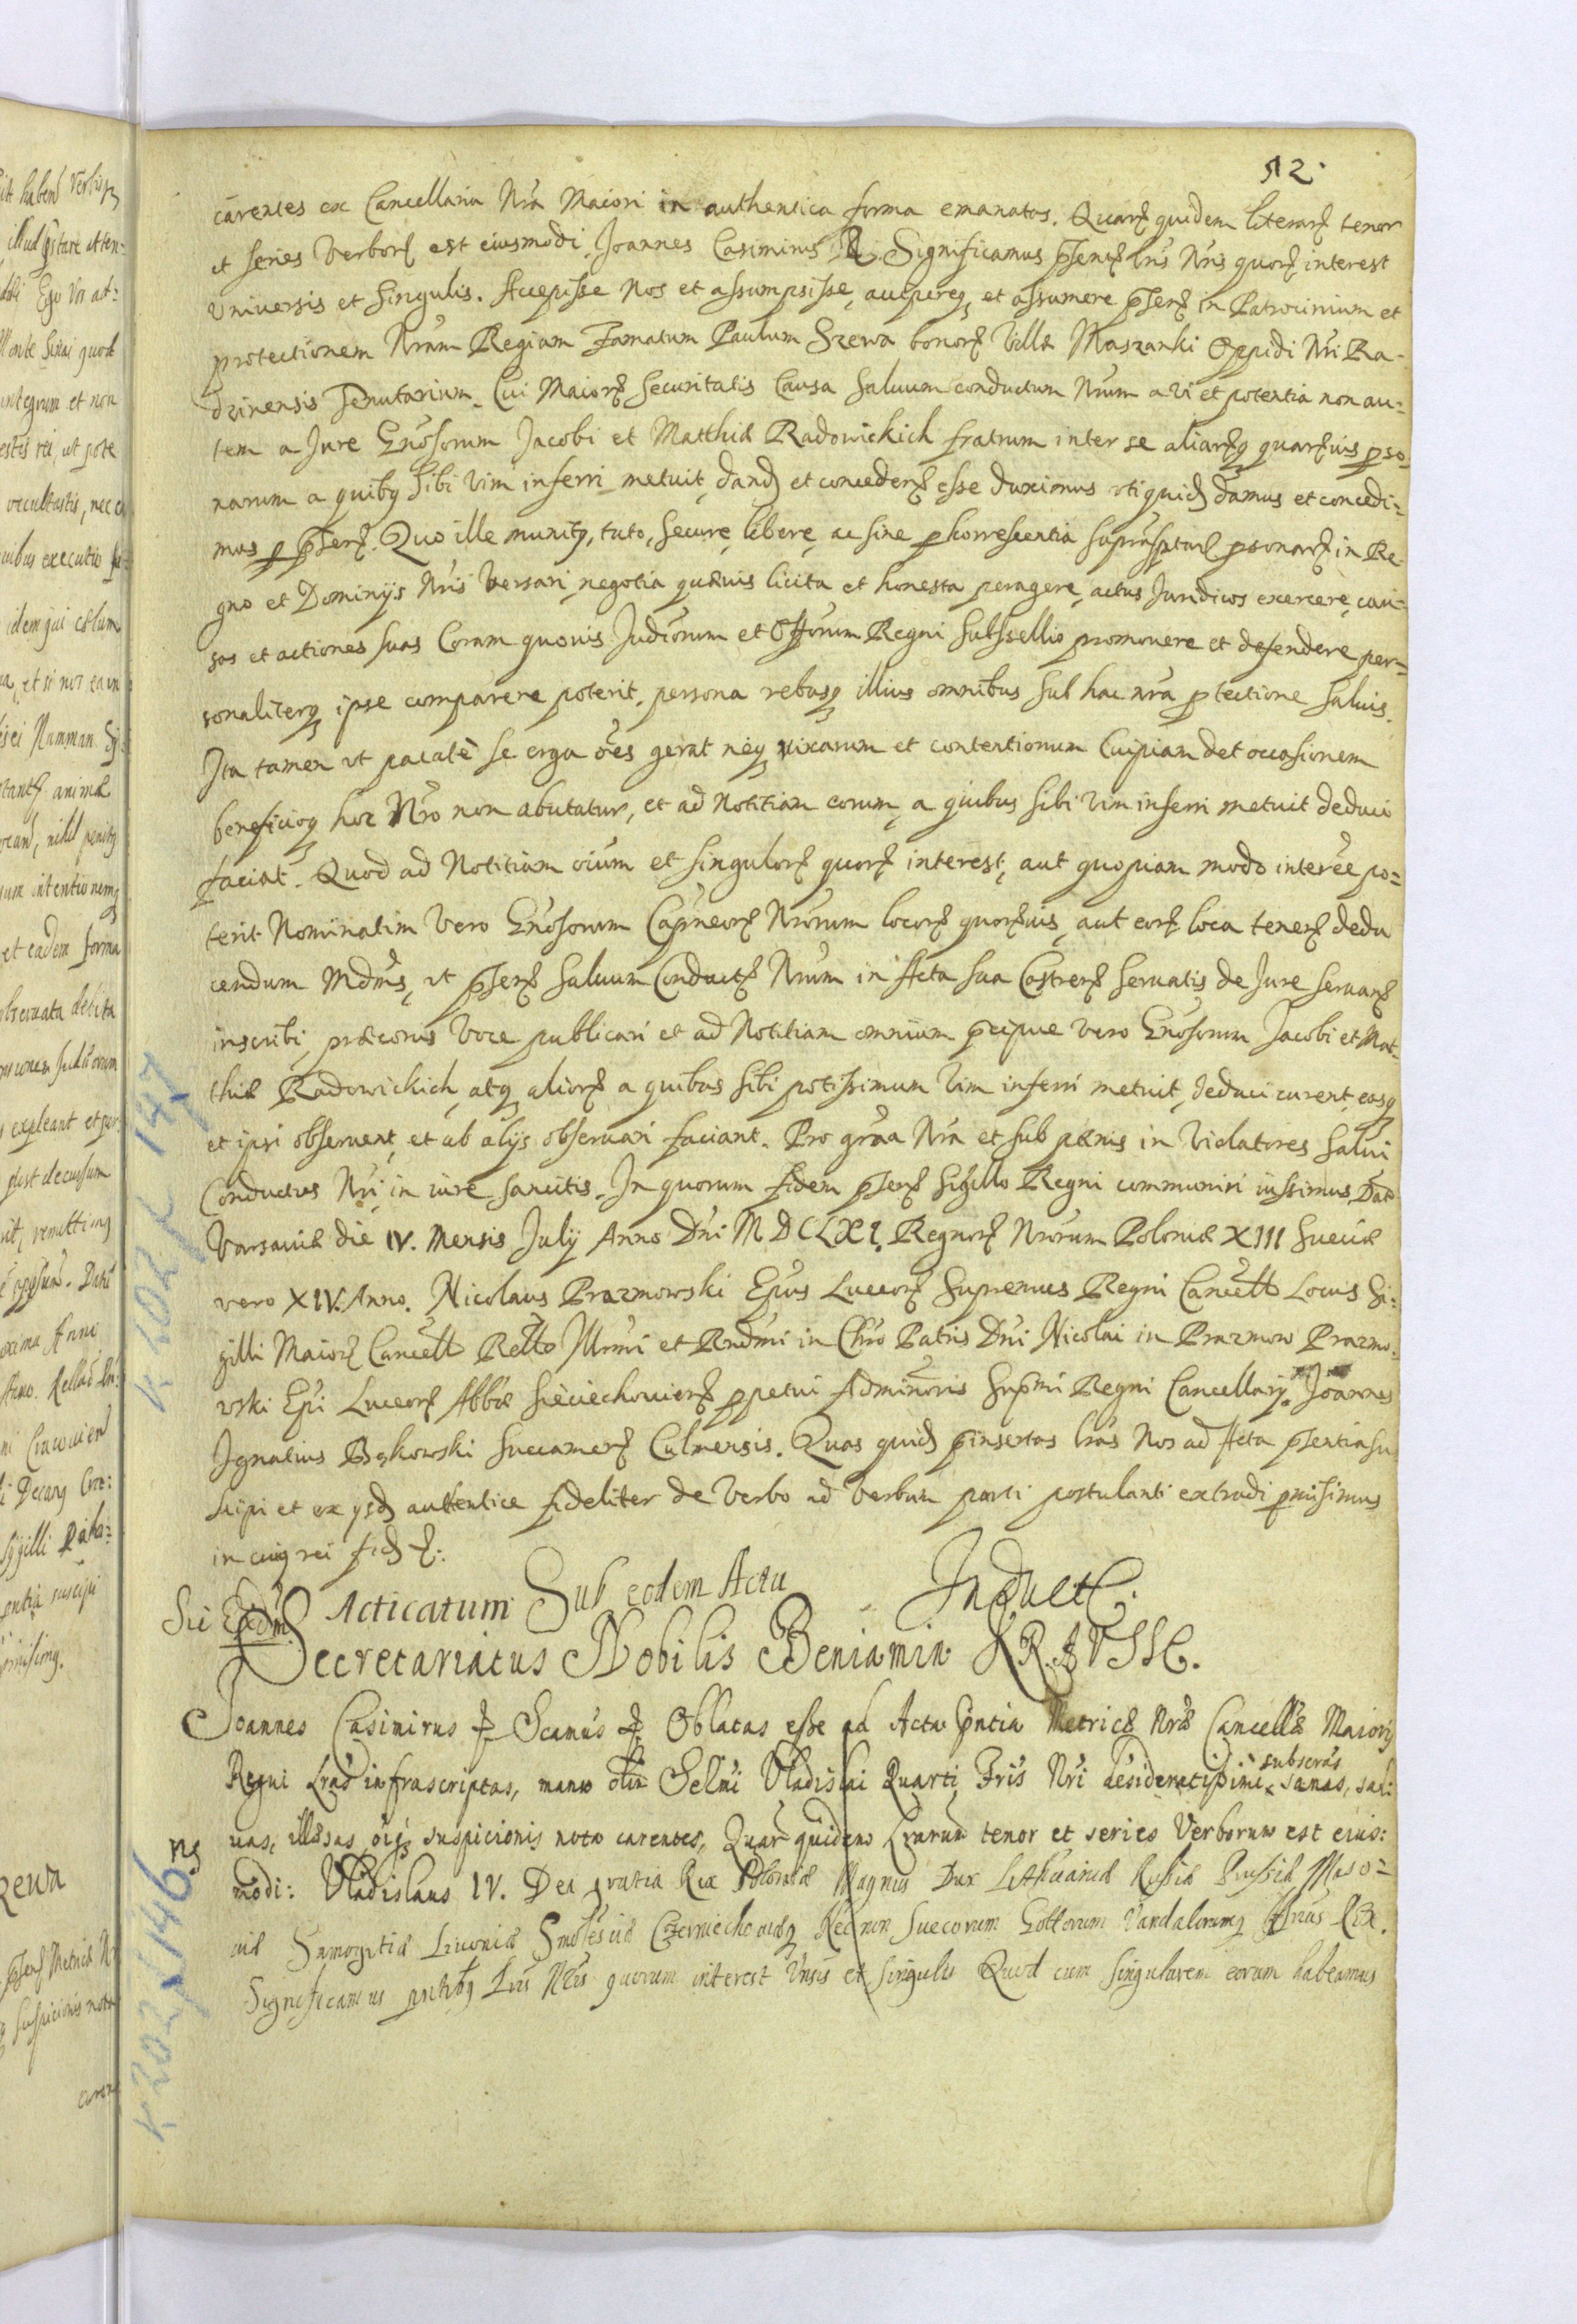 512.
carentes ex Cancellaria Nra Maiori in authentica forma emanatas. Quarū quidem literarū tenor
et series Verborū est eiusmodi. Joannes Casimirus &c. Significamus pṡentū lris Nris quorū interest
Universis et singulis. Accepisse Nos et assumpsisse, accipereq, et assumere pṡenū in Patrocinium et
protectionem Nram Regiam Famatum Paulum Szewa bonorū Villæ Maszanki Oppidi Nri Ra-
dzinensis Tenutarium. Cui Maiorū securitatis Causa Salvum conductum Nrum a vi et potentia non au=
tem a Jure Gnosorum Jacobi et Matthiæ Radowickich fratrum inter se aliarūq quarūvis pso=
narum a quibq sibi vim inferri metuit, dand et concedenū esse duximus uti quid damus et concedi=
mus p pṡenū. Quo ille munitq, tuto, secure, libere, ac sine phorrescentia suprasptarū psonarū in Re-
gno et Dominijs Nris Versari, negotia quævis licita et honesta peragere, actus Juridicos exercere, cau=
sas et actiones suas Coram quovis Judiciorum et Offiorum Regni Subsellio promovere et defendere per=
sonaliterq ipse comparere poterit, persona rebusq illius omnibus sub hac nra ptectione salvis.
Ita tamen ut pacatè se erga oēs gerat neq rixarum et contentionum Cuipiam det occasionem
beneficioq hoc Nro non abutatur, et ad Notitiam eorum, a quibus sibi vim inferri metuit deduci
faciat. Quod ad Notitiam oium et singulorū quorū interest, aut quopiam modo interēe po=
terit Nominatim Vero Gnosorum Capneorū Nrorum locorū quorūvis, aut eorū loca tenenū dedu
cendum Mdmus, ut pṡenū Salvum Conductū Nrum in Acta sua Castrenū servatis de Jure servanū
inscribi, præconis Voce publicari et ad Notitiam omnium pcipue vero Gnosorum Jacobi et Mat-
thiæ Radowickich, atq aliorū a quibus sibi potissimum vim inferri metuit, deduci curent, easq
et ipsi observent, et ab alijs observari faciant. Pro graa Nra et sub pœnis in Violatores Salvi
Conductus Nri in iure sancitis. In quorum fidem pṡenū Sigillo Regni communiri iussimus Dat
Varsaviæ die IV. Mensis July Anno Dni MDCLXI. Regnorū Nrorum Poloniæ XIII Sueciæ
vero XIV. Anno. Nicolaus Prazmowski Epus Luceorū Supremus Regni Cancell Locus Si=
gilli Maiorū Cancell Relto Illrmi et Rndmi in Chro Patris Dni Nicolai in Prazmow Prazmo-
wski Epi Luceorū Abbæ Sieciechovienū ppetui Adminoris Supmi Regni Cancellarÿ. Joannes
Ignatius Bąkowski Succamerū Culmensis. Quas quid pinsertas lras Nos ad Acta pṡentia su
scipi et ex ysd authentice fideliter de Verbo ad Verbum parti postulanti extradi pmisimus
in cuiq rei fid &.
Sub eodem Actu Inducta.
Acticatum
Secretariatus Nobilis Beniamin KRAUSSE.
Joannes Casimirus & Scamus & Oblatas esse ad Acta pntia Metricæ Nræ Cancellæ Maioris
Regni Lras infrascriptas, manu olim Selmi Vladislai Quarti Fris Nri desideratissimi subscras sanas, sal:
vas, illæsas, oiq suspicionis nota carentes, Quar quidem Lrarum tenor et series Verborum est eius:
modi: Vladislaus IV. Dei gratia Rex Poloniæ Magnus Dux Lithuaniæ Russiæ Prussiæ Maso=
viæ Samogitiæ Livoniæ Smolesciæ Czerniechoviæq Necnon Suecorum Gottorum Vandalorumq Hrius Rex.
Significamus pntibq Lris Nris quorum interest Unsis et singulis Quod cum singularem eorum habeamus
K 202 k 147
K 202 k 146